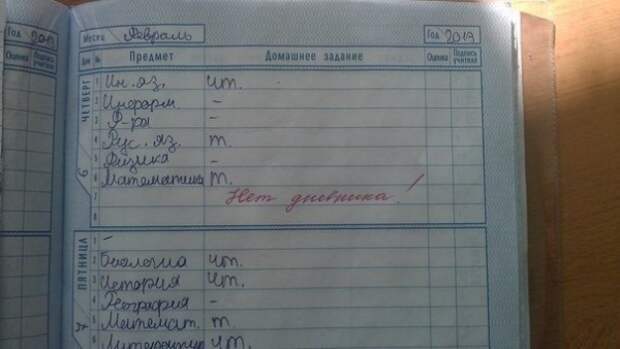 Год 2019 Месяц Февраль Год 2019
Оценка Подпись учителя Дни № Предмет Домашнее задание Оценка Подпись учителя
ЧЕТВЕРГ
1 Ин. яз. чт.
2 Информ. -
3 Ф-ра -
4 Рус. яз. т.
5 Физика -
6 Математика т.
7 Нет дневника!
8
ПЯТНИЦА
1 -
2 Биология чт.
3 История чт.
4 География -
5 Математ. т.
6 Литератур чт.